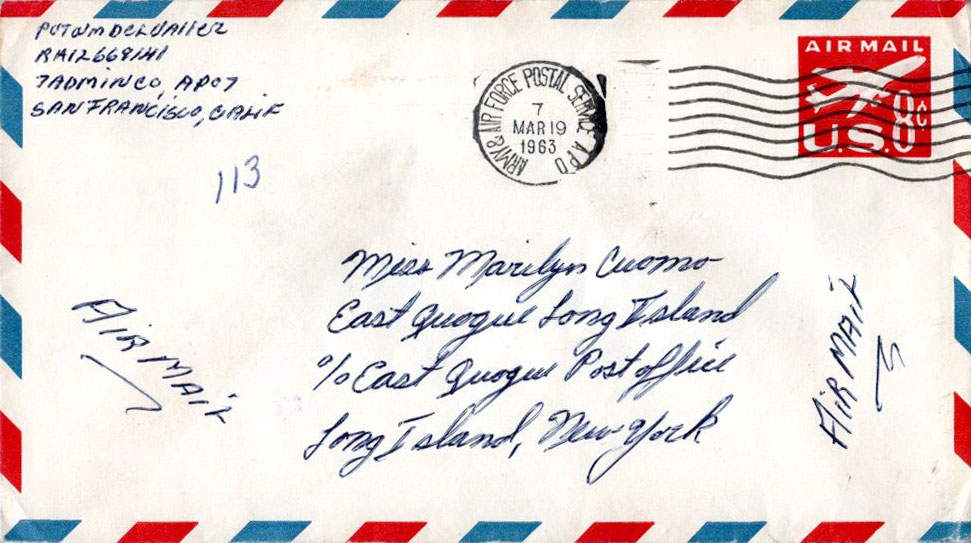 PVT WM DELVALLE
RA12668141
7ADMINCO, APO7
SAN FRANCISCO, CALIF
113
ARMY & AIR FORCE POSTAL SERVICE APO
7
MAR 19
1963
AIR MAIL
U.S. 8¢
Miss Marilyn Cuomo
East Quogue Long Island
℅ East Quogue Post office
Long Island, New York
AIR MAIL
AIR MAIL